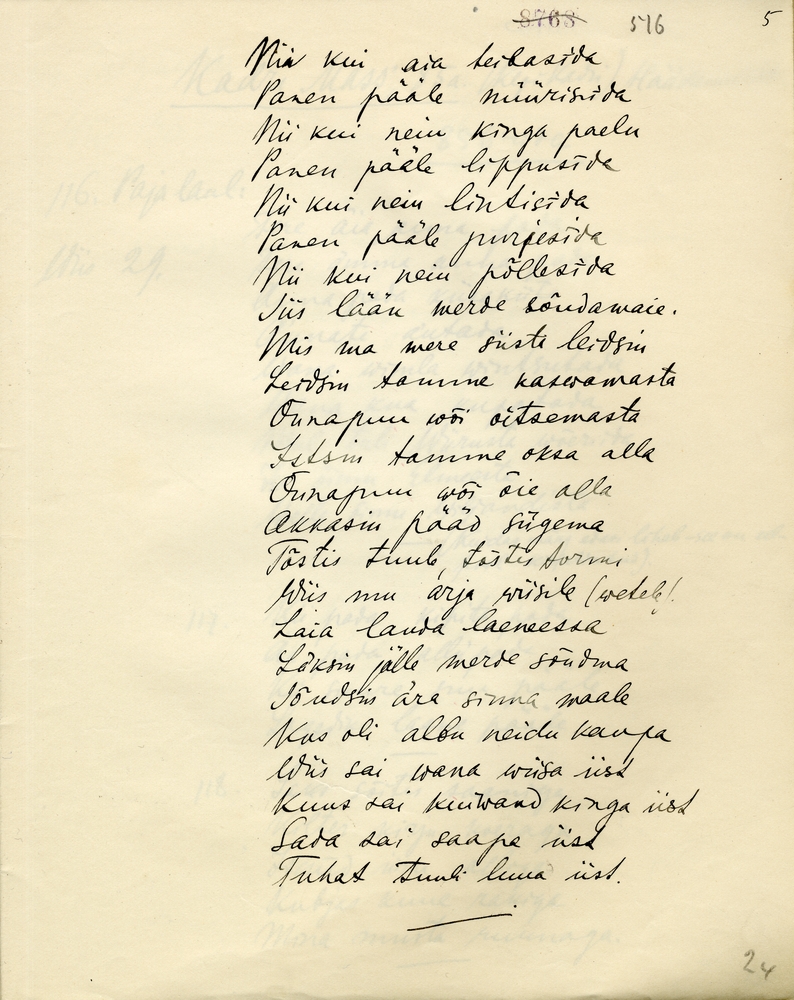 8768 516 5
Nii kui aia teibasida
Panen pääle müürisida
Nii kui nein kinga paelu
Panen pääle lippusida
Nii kui nein lintisida
Panen pääle purjesida
Nii kui nein põllesida
Siis lään merde sõudamaie.
Mis ma mere siista leidsin
Leidsin tamme kaswamasta
Õunapuu wõi õitsemasta
Istsin tamme oksa alla
Õunapuu wõi õie alla
Akkasin pääd sügema
Tõstis tuule, tõstis tormi
Wiis mu ärja wiisile (wetele).
Laia lauda laenessa
Läksin jälle merde sõudma
Jõudsin ära sinna maale
Kus oli albu neidu kaupa
Wiis sai wana wiisa iist
Kuus sai kuiwand kinga iist
Sada sai saapa iist
Tuhat tuuli luua iist.
24